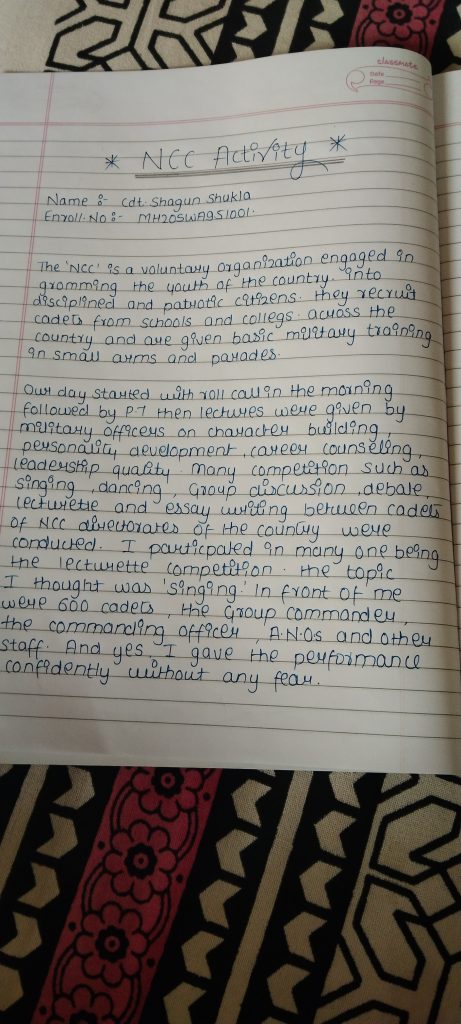 classmate
Date
Page
* NCC Activity *
Name :- Cdt. Shagun Shukla
Enroll. No :- MH20SWA951001.
The 'NCC' is a voluntary organization engaged in
gromming the youth of the country. into
disciplined and patriotic citizens. they recruit
cadets from schools and collegs. across the
country and are given basic military training
in small arms and parades.
Our day started with roll call in the morning
followed by P.T then lectures were given by
military officers on character building,
personality development, career counseling,
leadership quality. Many competition such as
singing, dancing, Group discussion, debale,
lecturette and essay writing between cadets
of NCC directorates of the country were
conducted. I particpated in many one being
the lecturette competition. the topic
I thought was 'singing.' In front of me
were 600 cadets, the Group commander,
the commanding officer, A.N.Os and other
staff. And yes, I gave the performance
confidently without any fear.